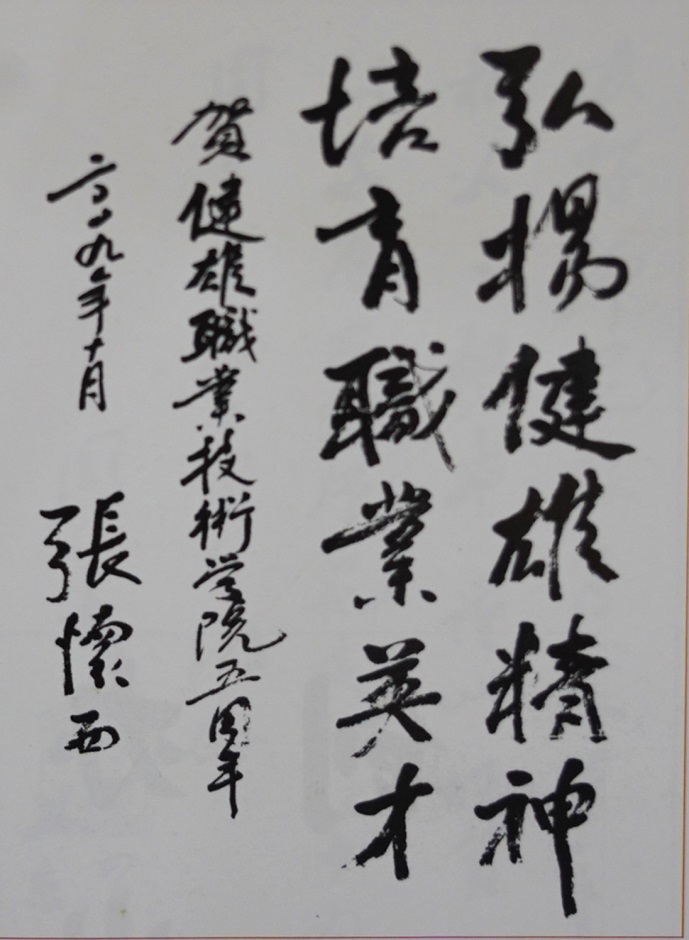 弘揚健雄精神
培育職業英才
賀健雄職業技術学院五周年
二〇〇九年十月
張懷西